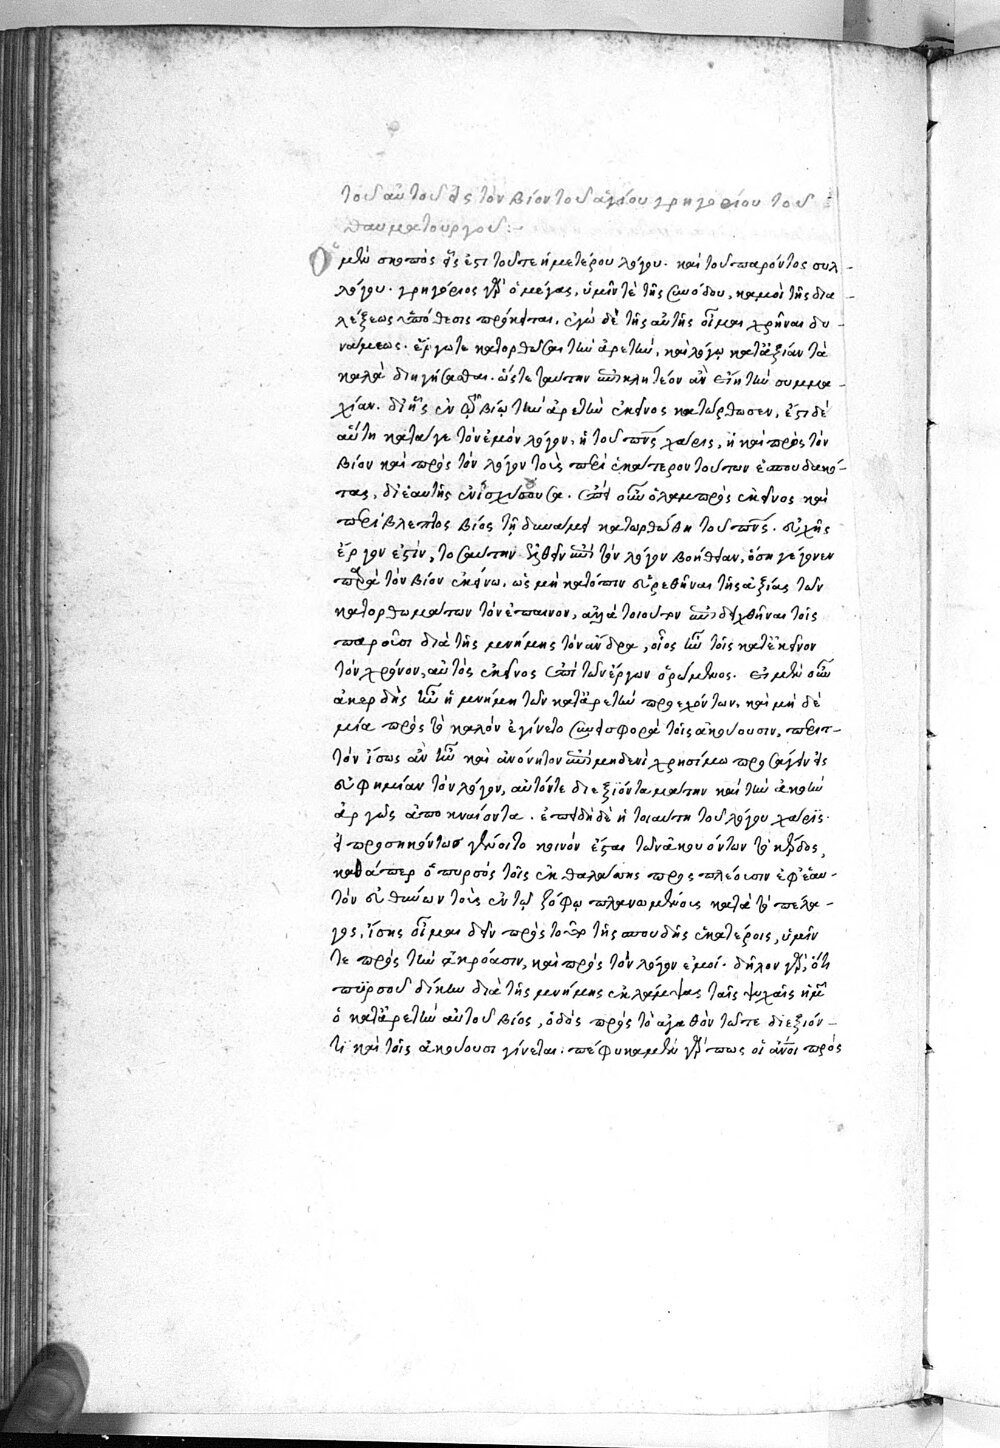 τοῦ αὐτοῦ εἰς τὸν βίον τοῦ ἁγίου γρηγορίου τοῦ
θαυματουργοῦ:-
Ὁ μὲν σκοπὸς εἷς ἐστι τοῦ τε ἡμετέρου λόγου. καὶ τοῦ παρόντος συλ-
λόγου. γρηγόριος γὰρ ὁ μέγας, ὑμῖν τὲ τῆς συνόδου, κἀμοὶ τῆς δια-
λέξεως ὑπόθεσις πρόκειται. ἐγὼ δὲ τῆς αὐτῆς οἶμαι χρῆναι δυ-
νάμεως. ἔργω τε κατορθῶσαι τὴν ἀρετὴν, καὶ λόγω κατ' ἀξίαν τὰ
καλὰ διηγήσασθαι. ὥστε ταύτην ἐπικλητέον ἂν εἴη τὴν συμμα-
χίαν. δι' ἧς ἐν τῷ βίῳ τὴν ἀρετὴν ἐκεῖνος κατώρθωσεν, ἔστι δὲ
αὕτη κατά γε τὸν ἐμὸν λόγον, ἡ τοῦ πνς χάρις, ἡ καὶ πρὸς τὸν
βίον καὶ πρὸς τὸν λόγον τοὺς περὶ ἑκάτερον τούτων ἐσπουδακό-
τας, δι' ἑαυτῆς ἐνισχύσουσα. ἐπεὶ οὖν ὁ λαμπρὸς ἐκεῖνος καὶ
περίβλεπτος βίος τῇ δυνάμει κατωρθώθη τοῦ πνς. εὐχῆς
ἔργον ἐστὶν, τοσαύτην ἐλθεῖν ἐπὶ τὸν λόγον βοήθειαν, ὅση γέγονεν
παρὰ τὸν βίον ἐκείνω, ὡς μὴ κατόπιν εὑρεθῆναι τῆς ἀξίας τῶν
κατορθωμάτων τὸν ἔπαινον, ἀλλὰ τοιοῦτον ἐπιδειχθῆναι τοῖς
παροῦσι διὰ τῆς μνήμης τὸν ἄνδρα, οἷος ἦν τοῖς κατ' ἐκεῖνον
τὸν χρόνον, αὐτὸς ἐκεῖνος ἐπὶ τῶν ἔργων ὁρώμενος. Εἰ μὲν οὖν
ἀκερδὴς ἦν ἡ μνήμη τῶν κατ' ἀρετὴν προεχόντων, καὶ μὴ δὲ
μία πρὸς τὸ καλὸν ἐγίνετο συνεισφορὰ τοῖς ἀκούουσιν, περιτ-
τὸν ἴσως ἂν ἦν καὶ ἀνόνητον ἐπὶ μηδενὶ χρησίμω προσάγειν εἰς
εὐφημίαν τὸν λόγον, αὐτόν τε διεξιόντα μάτην καὶ τὴν ἀκοὴν
ἀργῶς ἀποκναίοντα. ἐπειδὴ δὲ ἡ τοιαύτη τοῦ λόγου χάρις.
εἰ προσηκόντως γένοιτο κοινὸν ἔσται τῶν ἀκουόντων τὸ κέρδος,
καθάπερ ὁ πυρσὸς τοῖς ἐκ θαλάσσης προσπλέουσιν ἐφ' ἑαυ-
τὸν εὐθύνων τοὺς ἐν τῷ ζόφῳ πλανωμένους κατὰ τὸ πέλα-
γος, ἴσης οἶμαι δεῖν πρὸς τοῦτο τῆς σπουδῆς ἑκατέροις, ὑμῖν
τε πρὸς τὴν ἀκρόασιν, καὶ πρὸς τὸν λόγον ἐμοί. δῆλον γὰρ, ὅτι
πυρσοῦ δίκην διὰ τῆς μνήμης ἐκλάμψας ταῖς ψυχαῖς ἡμῶν
ὁ κατ' ἀρετὴν αὐτοῦ βίος, ὁδὸς πρὸς τὸ ἀγαθὸν τῶ τε διεξιόν-
τι καὶ τοῖς ἀκούουσι γίνεται. πεφύκαμεν γάρ πως οἱ ἄνοι πρὸς